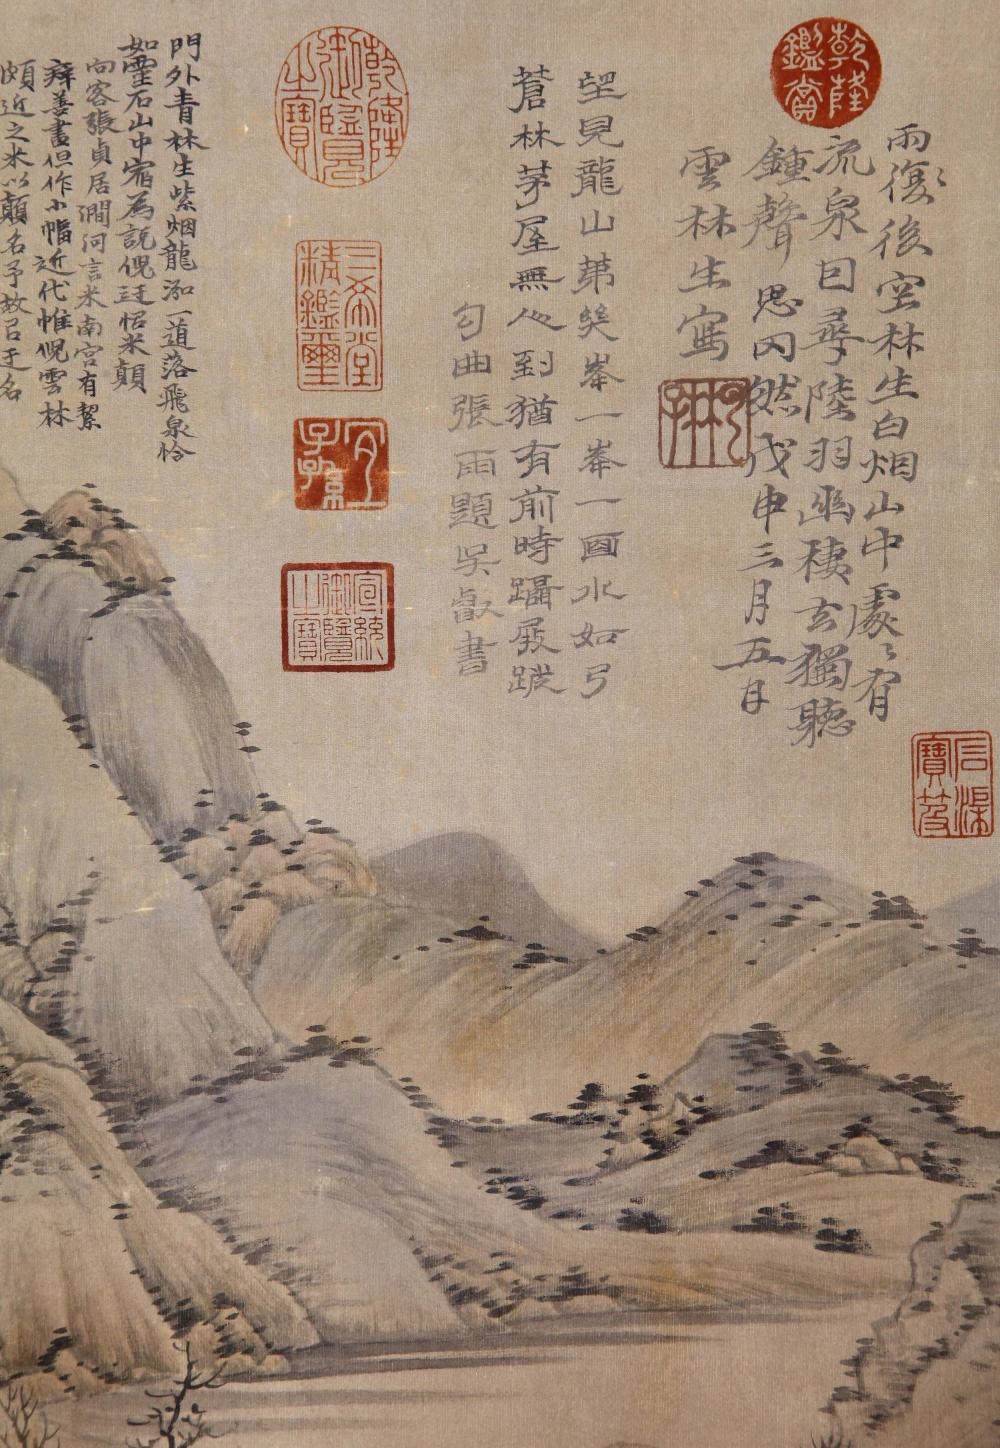 雨後空林生白烟山中處〻有
流泉因尋陸羽幽棲去獨聽
鍾聲思罔然戊申三月五日
雲林生寫
望見龍山第幾峯一峯一面水如弓
蒼林茅屋無人到猶有前時躡屐蹤
句曲張雨題吳叡書
門外青林生紫烟龍泓一道落飛泉恰
如靈石山中宿為說倪迂怪米顛
向客張貞居澗阿言米南宮有潔
癖善畫但作小幅近代惟倪雲林
頗近之米以顛名予故
乾隆鑑賞
乾隆御覽之寶
三希堂精鑑璽
宜子孫
宣統御覽之寶
石渠寶笈